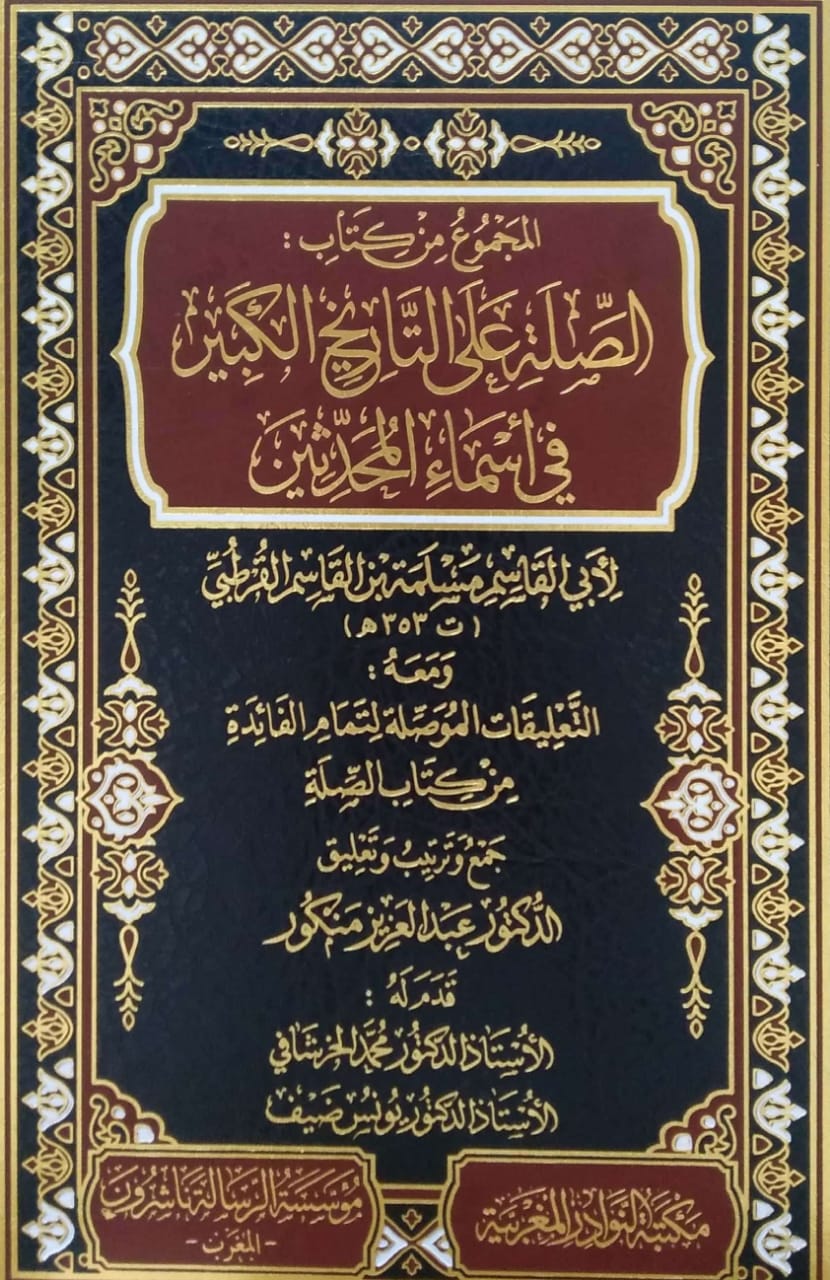 المَجْمُوعُ مِنْ كِتَابِ :
الصِّلَةِ عَلَى التَّارِيخِ الكَبِيرِ
فِي أَسْمَاءِ المُحَدِّثِينَ
لِأَبِي القَاسِمِ مَسْلَمَة بْنِ القَاسِمِ القُرْطُبِيِّ
( ت ٣٥٣ هـ )
وَمَعَهُ :
التَّعْلِيقَات المُوَصِّلَة لِتَمَامِ الفَائِدَةِ
مِنْ كِتَابِ الصِّلَةِ
جَمْعُ وَتَرْتِيبُ وَتَعْلِيق
الدُّكْتُور عَبْد العَزِيز مَنْكُور
قَدَمَ لَهُ :
الأُسْتَاذ الدكتور مُحَمَّد الخرشَافي
الأُسْتَاذ الدكتور يُونُس ضَيف
مَكْتَبَة النَّوَادِر المَغْرِبِيَة
مُؤَسَّسَةُ الرِّسَالَة نَاشِرُون
- المَغرب -